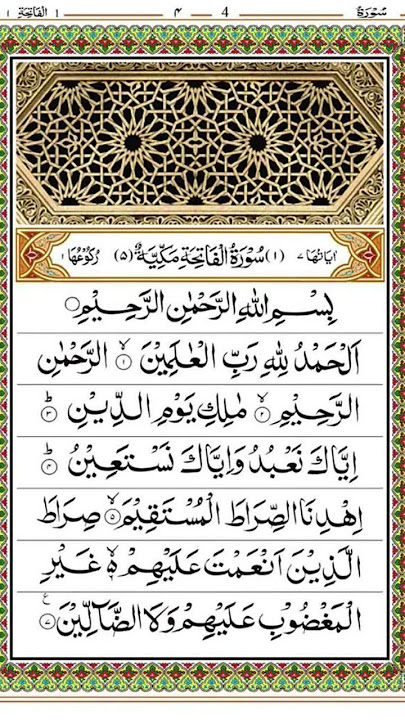 سُوْرَةٌ ٤ 4 الْفَاتِحَةِ ١ ١
اٰيَاتُهَا ٧ (١) سُوْرَةُ الْفَاتِحَةِ مَكِّيَّةٌ (٥) رُكُوْعُهَا ١
بِسْمِ اللّٰهِ الرَّحْمٰنِ الرَّحِيْمِ
اَلْحَمْدُ لِلّٰهِ رَبِّ الْعٰلَمِيْنَ ۙ ١ الرَّحْمٰنِ
الرَّحِيْمِ ۙ ٢ مٰلِكِ يَوْمِ الدِّيْنِ ؕ ٣
اِيَّاكَ نَعْبُدُ وَاِيَّاكَ نَسْتَعِيْنُ ؕ ٤
اِهْدِنَا الصِّرَاطَ الْمُسْتَقِيْمَ ۙ ٥ صِرَاطَ
الَّذِيْنَ اَنْعَمْتَ عَلَيْهِمْ ۙ ۵ غَيْرِ
الْمَغْضُوْبِ عَلَيْهِمْ وَلَا الضَّآلِّيْنَ ٧ ع